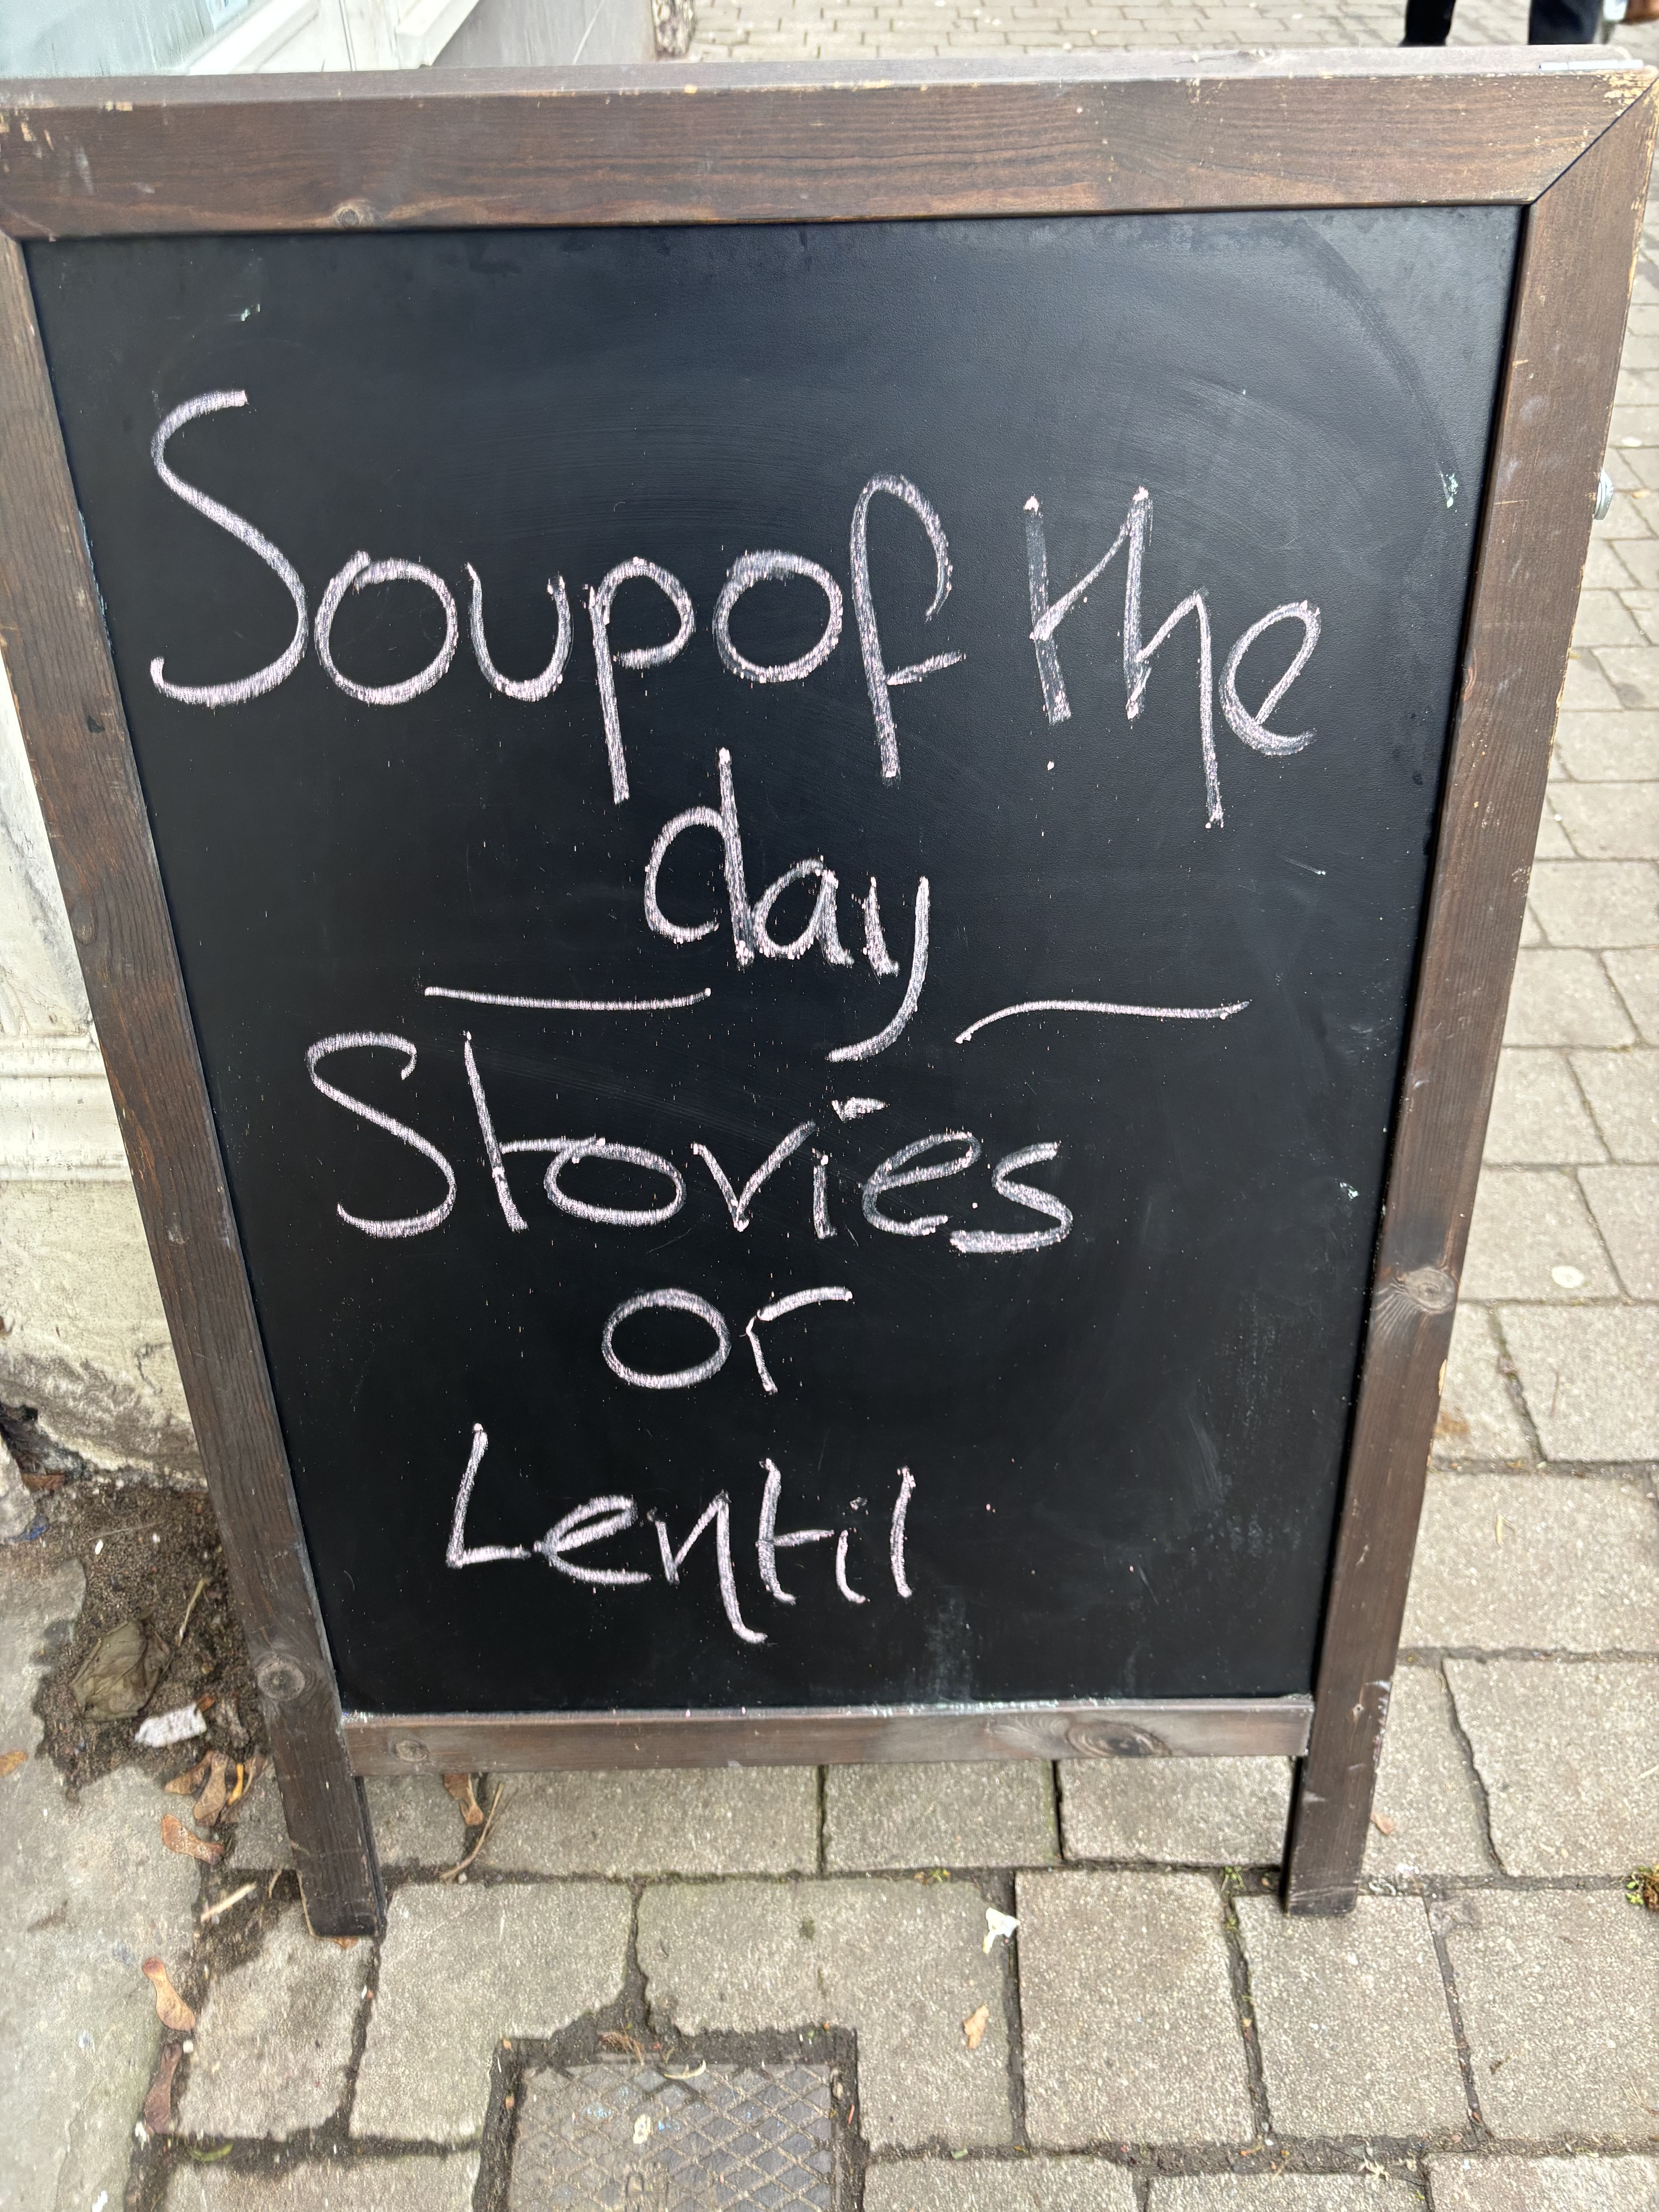 Soup of the
day
Stovies
or
Lentil